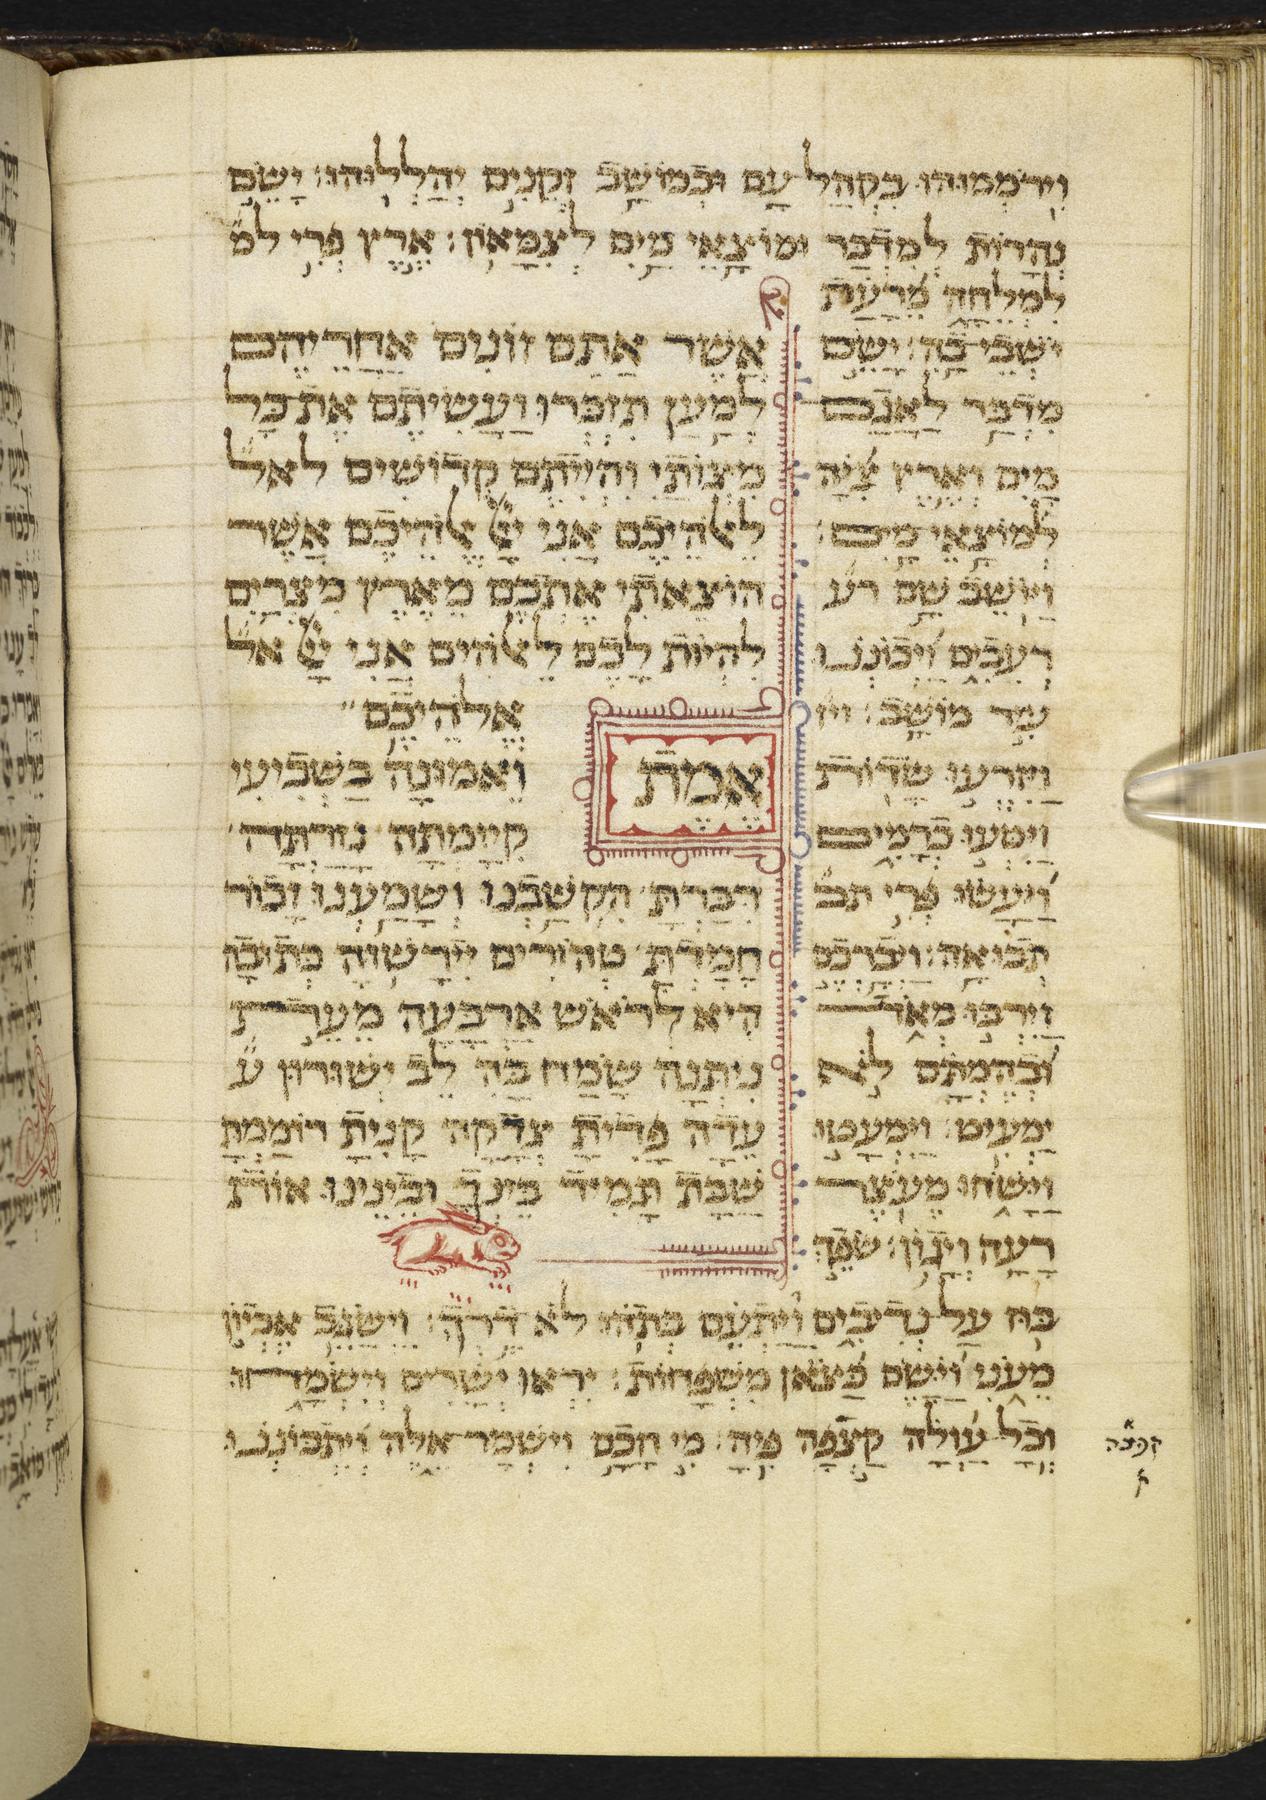 וירממוהו בקהל עם ובמושב זקנים יהללוהו: ישם
נהרות למדבר ומוצאי מים לצמאון: ארץ פרי למ
למלחה מרעת
ישבי בה: ישם
מדבר לאגם
מים וארץ ציה
למוצאי מים:
ויושב שם רע
רעבים ויכוננו
עיר מושב: ויז
ויזרעו שדות
ויטעו כרמים
ויעשו פרי תב
תבואה: ויברכם
וירבו מאד
ובהמתם לא
ימעיט: וימעטו
וישוחו מעוצר
רעה ויגון: שפך
אשר אתם זונים אחריהם
למען תזכרו ועשיתם את כל
מצותי והייתם קדושים לאל
לאלהיכם אני יי אלהיכם אשר
הוצאתי אתכם מארץ מצרים
להיות לכם לאלהים אני יי אל
אלהיכם
אמת ואמונה בשביעי
קיימתה גזרתה
דברת הקשבנו ושמענו זבוד
חמדת טהורים יירשוה כתובה
היא לראש ארבעה מערכת
ניתנה שמח בה לב ישורון ע
עדה פדית צדקה קנית רוממת
שבת תמיד בינך ובינינו אות
בוז על נדיבים ויתעם בתהו לא דרך: וישגב אביון
מעוני וישם כצאן משפחות: יראו ישרים וישמחו
וכל עולה קצפה פיה: מי חכם וישמר אלה ויתבוננו
קפצה